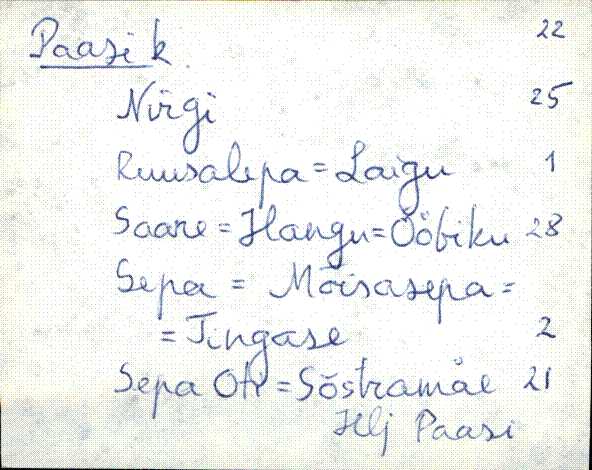 Paasi k. 22
Nirgi 25
Ruusalepa = Laigu 1
Saare = Hangu = Ööbiku 28
Sepa = Mõisasepa =
= Tingase 2
Sepa Ott = Sõstramäe 21
Hlj Paasi